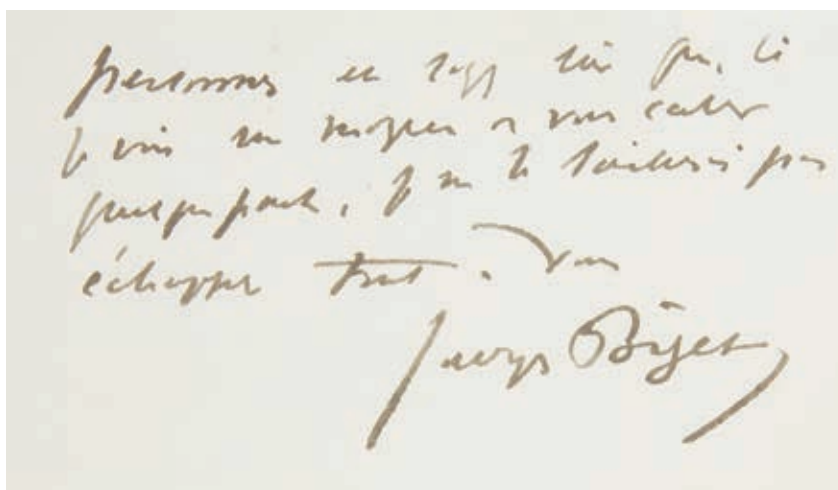 personnes et soyez sûr que, si
je vois un moyen de vous caser
quelque part, je ne le laisserai pas
échapper tout à vous
Georges Bizet